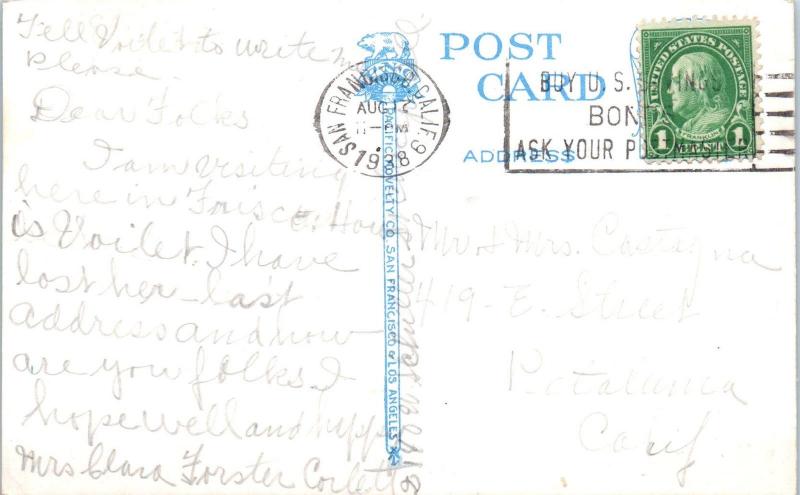 Tell Voilet to write me
please.
Dear Folks
I am visiting
here in Frisco. How
is Voilet. I have
lost her last
address and how
are you folks. I
hope well and happy
Mrs Clara Forster Corlett
POST
CARD
ADDRESS
SAN FRANCISCO, CALIF. 9
AUG 12
11-PM
1938
BUY U.S. SAVINGS
BON
ASK YOUR P
UNITED STATES POSTAGE
FRANKLIN
1 CENT 1
PACIFIC NOVELTY CO. SAN FRANCISCO & LOS ANGELES
Mr. & Mrs. Castagna
419- E. Street
Petaluma
Calif.